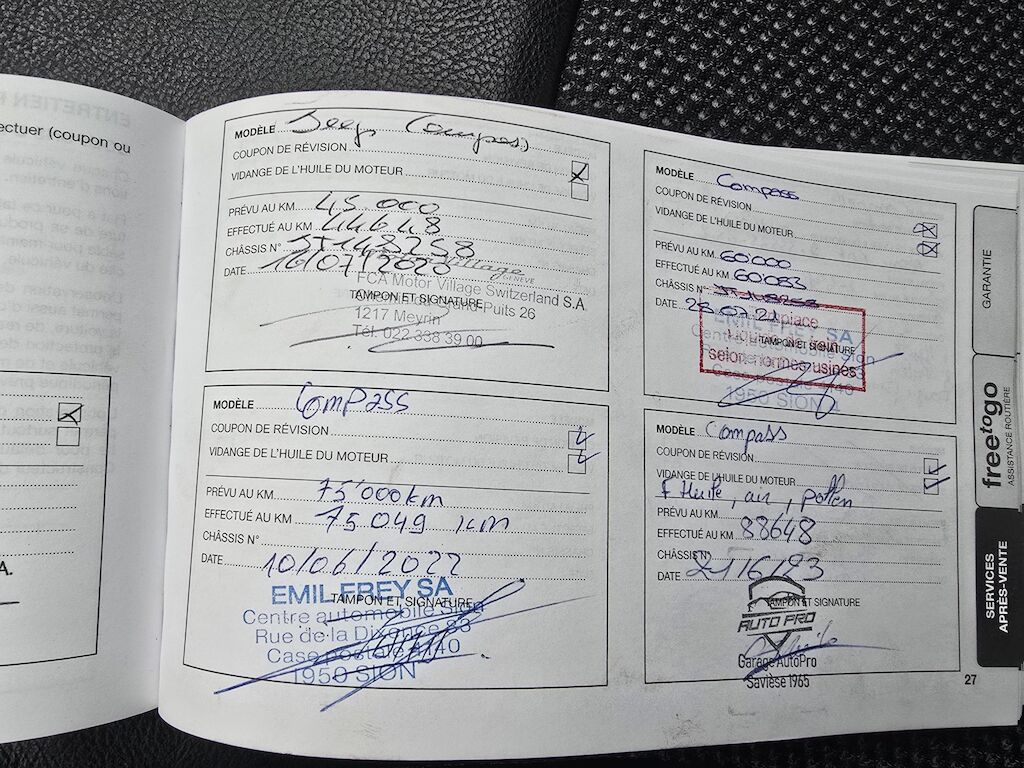 ectuer (coupon ou
A.
MODÈLE Jeep Compass
COUPON DE RÉVISION
VIDANGE DE L'HUILE DU MOTEUR
PRÉVU AU KM 45 000
EFFECTUÉ AU KM 44648
CHÂSSIS N°
DATE 16/07/2020
Village
FCA Motor Village Switzerland S.A
TAMPON ET SIGNATURE
Puits 26
1217 Meyrin
Tél. 022 338 39 00
MODÈLE Compass
COUPON DE RÉVISION
VIDANGE DE L'HUILE DU MOTEUR
PRÉVU AU KM 60'000
EFFECTUÉ AU KM 60'083
CHÂSSIS N°
DATE
EMIL FREY SA
TAMPON ET SIGNATURE
selon normes usines
1950 SION 1
MODÈLE Compass
COUPON DE RÉVISION
VIDANGE DE L'HUILE DU MOTEUR
PRÉVU AU KM 75'000km
EFFECTUÉ AU KM 75 049 km
CHÂSSIS N°
DATE 10/06/2022
EMIL FREY SA
TAMPON ET SIGNATURE
Centre automobile Sion
Rue de la Dixence 83
Case postale 4140
1950 SION
MODÈLE Compass
COUPON DE RÉVISION
VIDANGE DE L'HUILE DU MOTEUR
F Huile, air, pollen
PRÉVU AU KM
EFFECTUÉ AU KM 88648
CHÂSSIS N°
DATE 21/6/23
TAMPON ET SIGNATURE
AUTO PRO
Garage AutoPro
Savièse 1965
27
GARANTIE
freetogo
ASSISTANCE ROUTIÈRE
SERVICES
APRÈS-VENTE